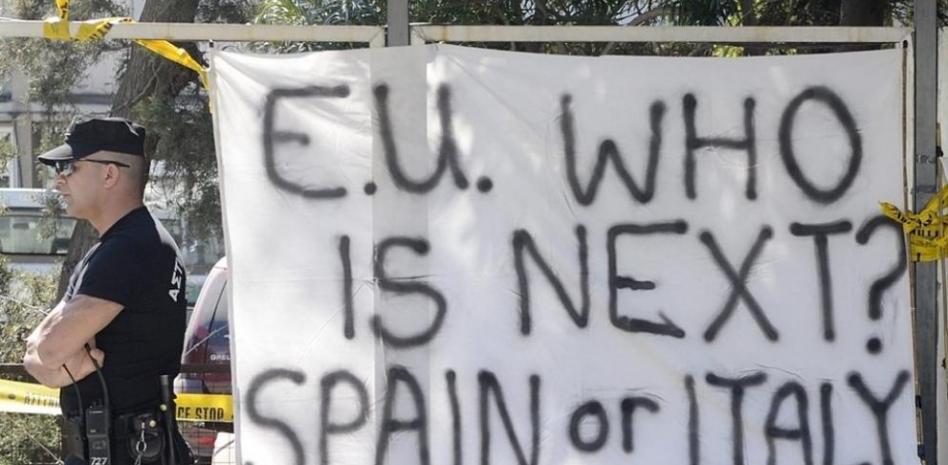 E.U. WHO
IS NEXT?
SPAIN or ITALY
CE STOP
727